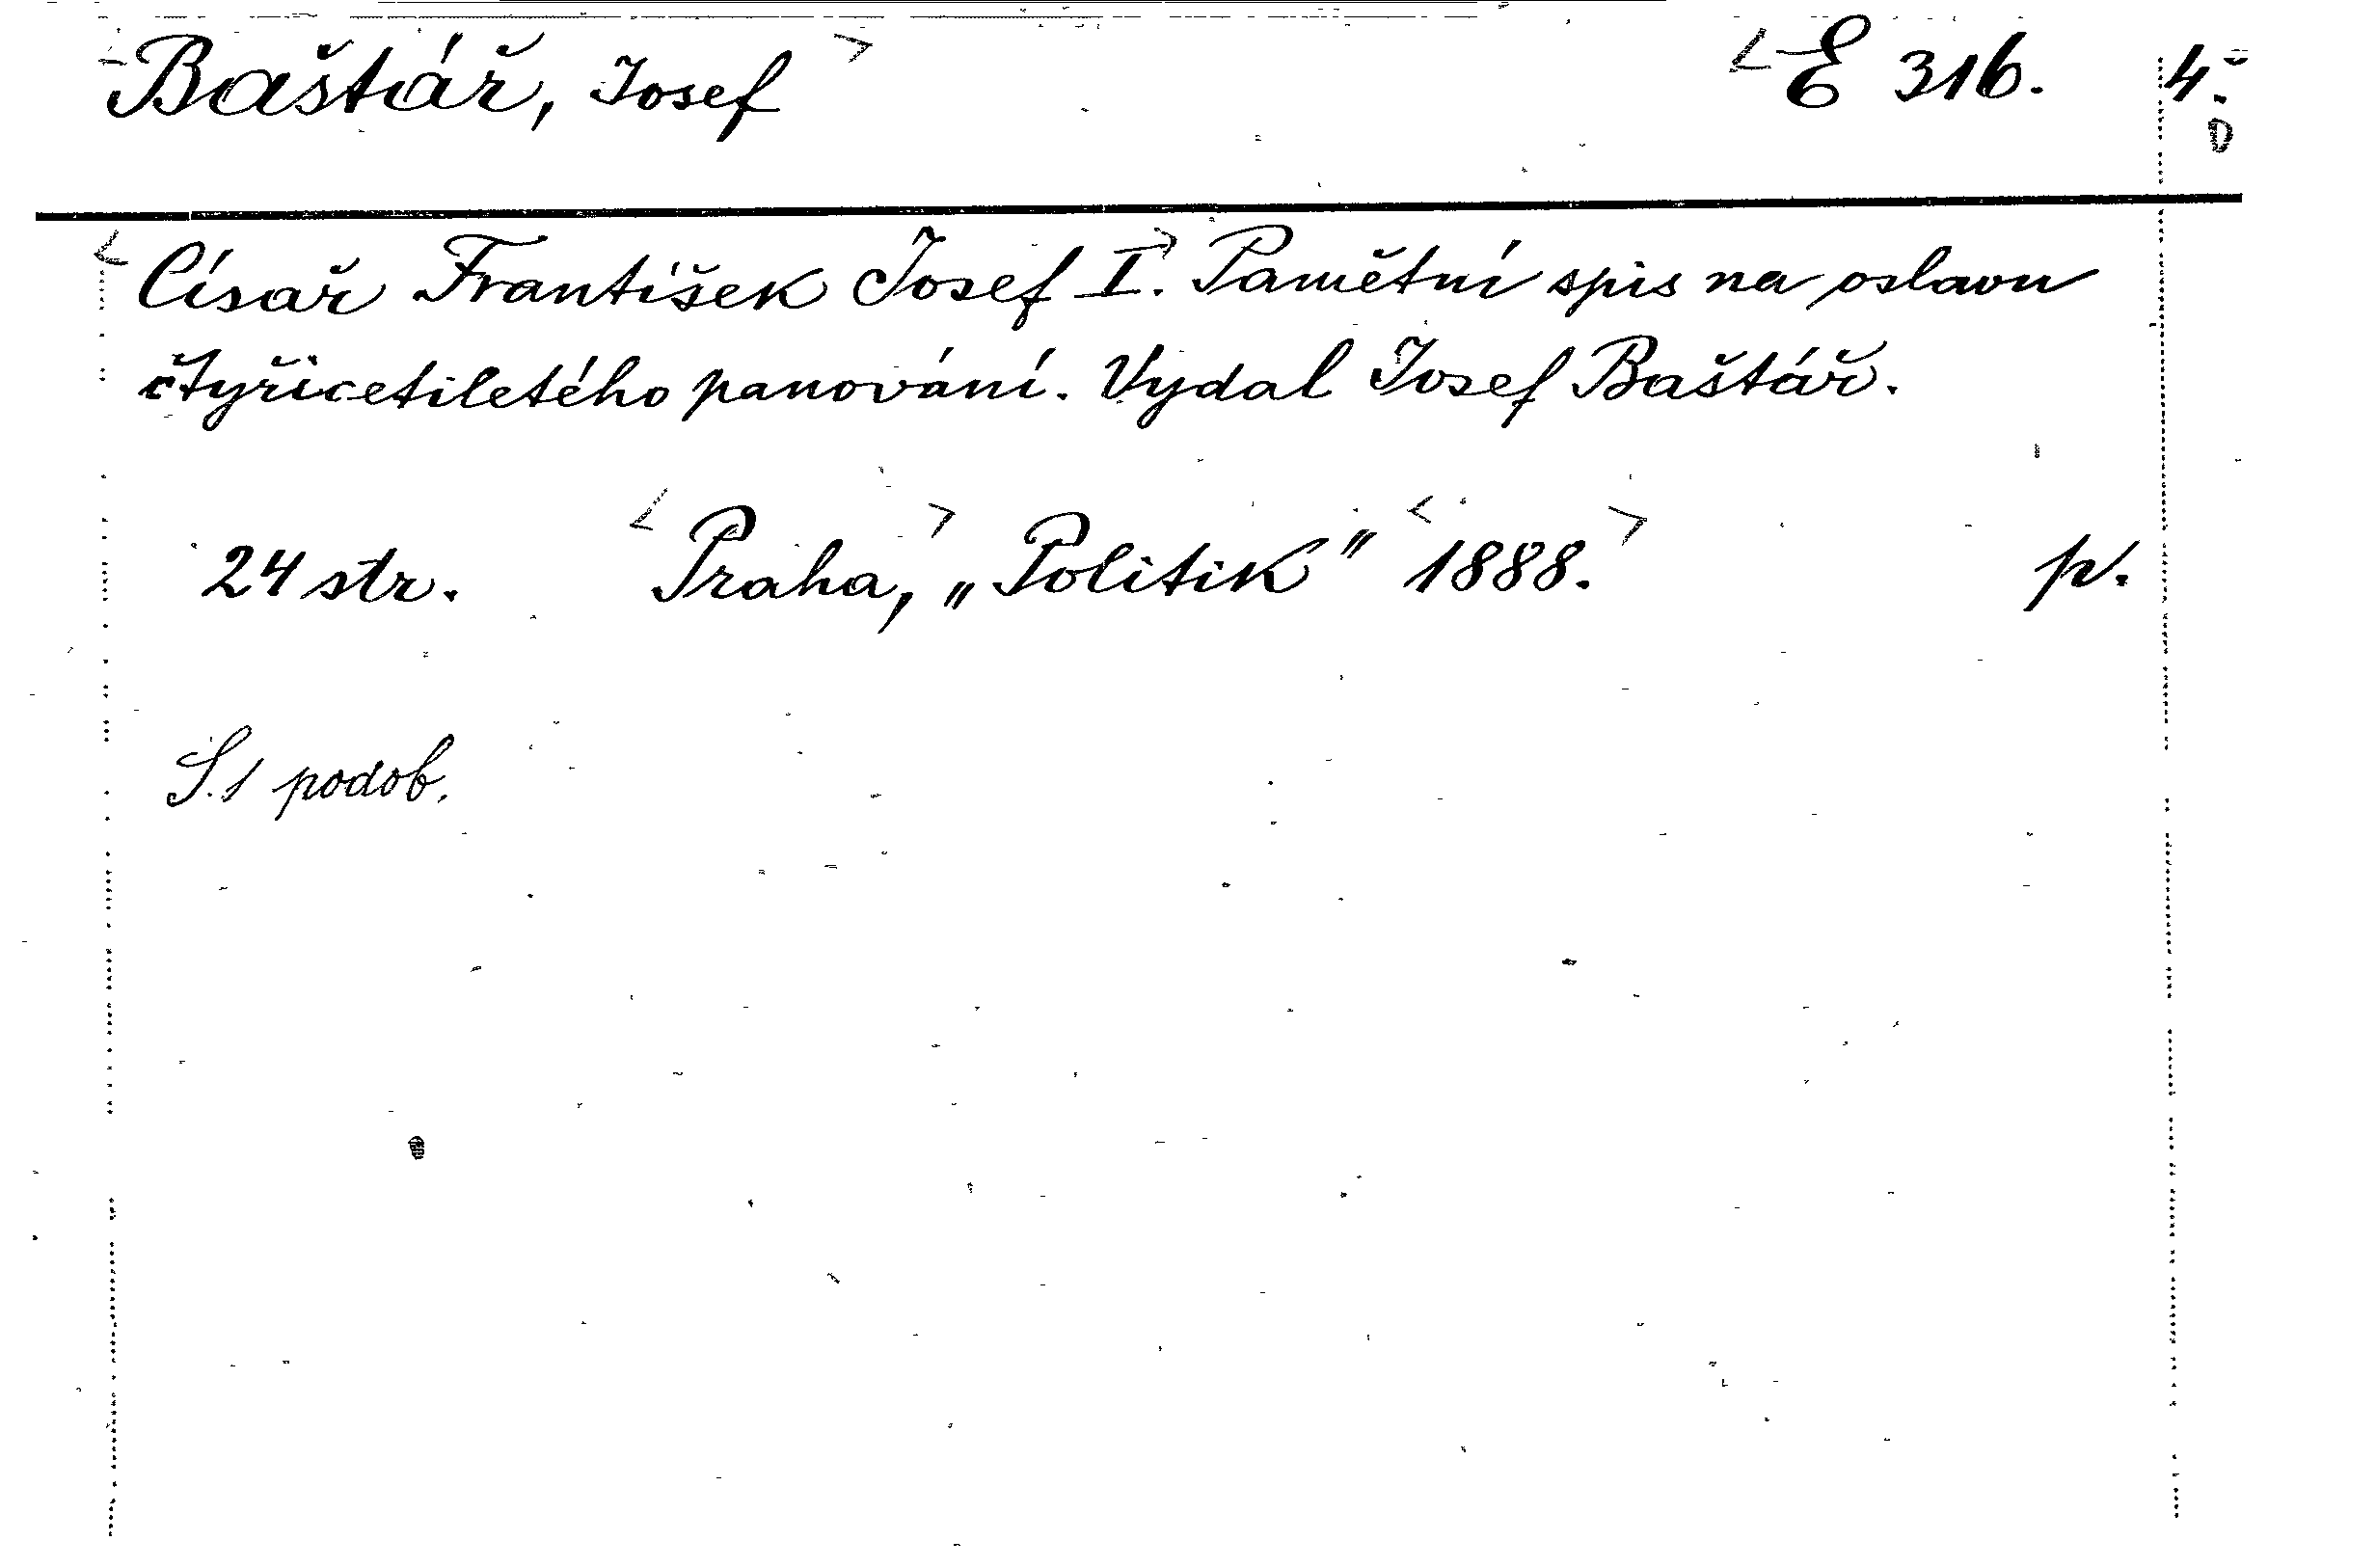 <Baštář, Josef> <E 316. 4.
D
<Císař František Josef I.> Pamětní spis na oslavu
čtyřicetiletého panování. Vydal Josef Baštář.
24 str. <Praha,> „Politik" <1888.> p.
S.1 podob.